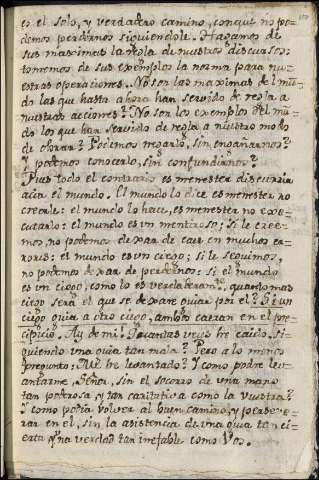 es el solo, y verdadero camino, conque no po=
demos perdernos siguiendole. Hagamos de
sus maximas la regla de nuestros discursos:
tomemos de sus exemplos la norma para nu=
estras operaciones. No son las maximas del mũ=
do las que hasta ahora han servido de regla a
nuestras acciones? No son los exemplos del mũ=
do los que han servido de regla a nuestro modo
de obrar? Podemos negarlo, sin engañarnos?
Y podemos conocerlo, sin confundirnos?
Pues todo el contrario es menester discurrir
acia el mundo. El mundo lo dice es menester no
creerle: el mundo lo hace, es menester no exe=
cutarlo: el mundo es un mentiroso; si le cree=
mos, no podemos dexar de caer en muchos er=
rores: el mundo es un ciego; si le seguimos,
no podemos dexar de perdernos: si el mundo
es un ciego, como lo es verdaderam.te, quanto mas
ciego será el que se dexare guiar por el? Si un
ciego guia a otro ciego, ambos caeran en el pre=
cipicio. Ay de mi! Quantas veces he caido, si=
guiendo una guia tan mala? Pero a lo menos
pregunto: Me he levantado? Y como podre lev=
antarme, Señor, sin el socorro de una mano
tan poderosa, y tan caritativa como la vuestra?
Y como podia volver al buen camino, y perseve=
rar en el, sin la asistencia de una guia tan ci=
erta y una verdad tan inefable como Vos.